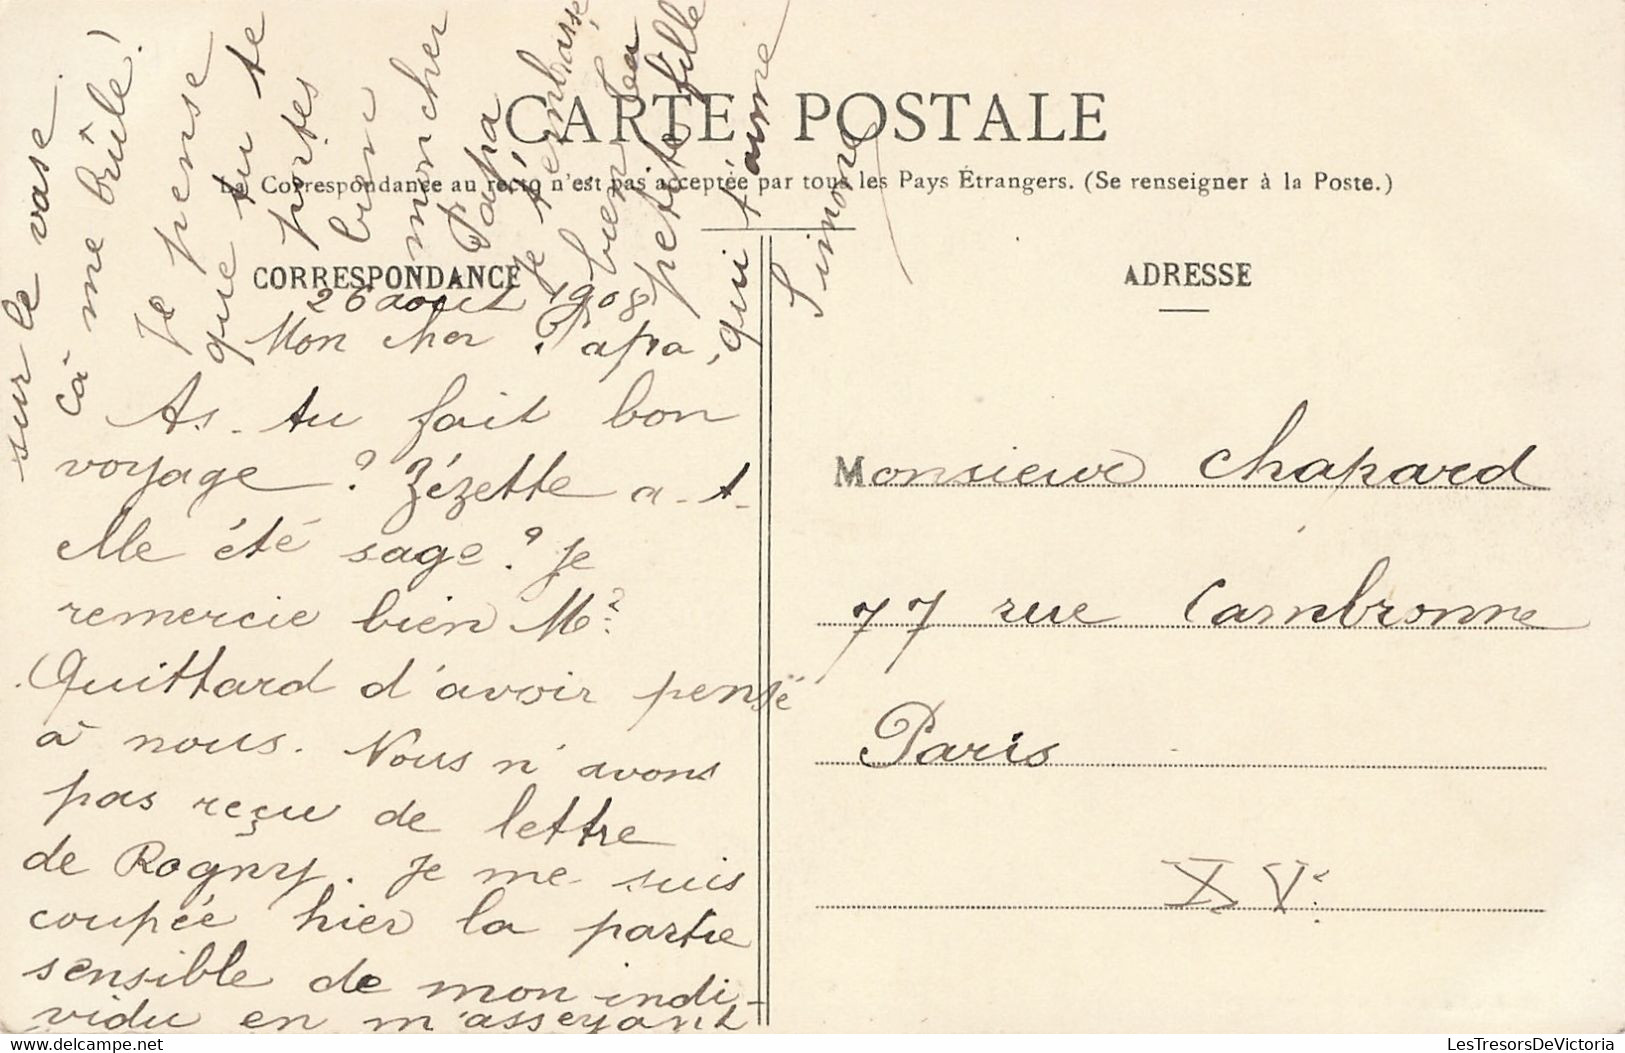 CARTE POSTALE
La Correspondance au recto n'est pas acceptée par tous les Pays Étrangers. (Se renseigner à la Poste.)
CORRESPONDANCE
26 aout 1908
Mon cher Papa,
As-tu fait bon
voyage ? Zézette a-t-
elle été sage ? Je
remercie bien Mr
Quittard d'avoir pensé
à nous. Nous n'avons
pas reçu de lettre
de Rogny. Je me suis
coupée hier la partie
sensible de mon indi-
vidu en m'asseyant
sur le vase
çà me brûle !
Je pense
que tu te
portes
bien
mon cher
Papa
Je t'embrasse
bien ta
petite fille
qui t'aime
Simone
ADRESSE
Monsieur Chapard
77 rue Cambronne
Paris
XVe
LesTresorsDeVictoria
www.delcampe.net